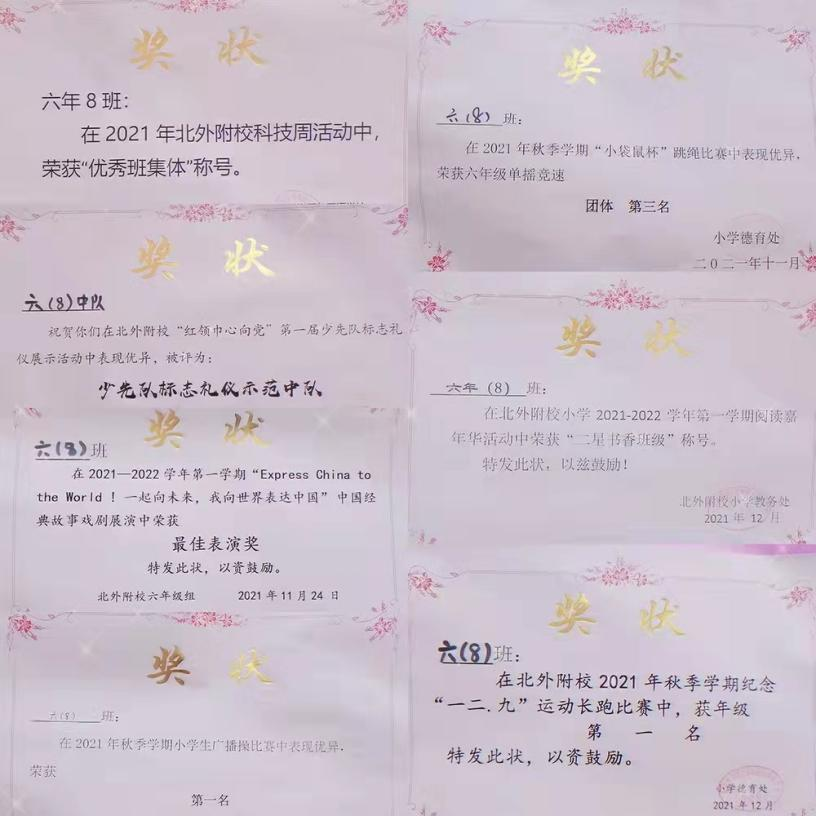 奖 状
六年8班:
在2021年北外附校科技周活动中,
荣获“优秀班集体”称号。
奖 状
六(8) 班:
在2021年秋季学期“小袋鼠杯”跳绳比赛中表现优异,
荣获六年级单摇竞速
团体 第三名
小学德育处
二〇二一年十一月
奖 状
六(8)中队
祝贺你们在北外附校“红领巾心向党”第一届少先队标志礼
仪展示活动中表现优异,被评为:
少先队标志礼仪示范中队
奖 状
六年(8) 班:
在北外附校小学2021-2022学年第一学期阅读嘉
年华活动中荣获“二星书香班级”称号。
特发此状,以兹鼓励!
北外附校小学教务处
2021年12月
奖 状
六(8)班
在2021—2022学年第一学期“Express China to
the World ! 一起向未来,我向世界表达中国”中国经
典故事戏剧展演中荣获
最佳表演奖
特发此状,以资鼓励。
北外附校六年级组 2021年11月24日
奖 状
六(8)班:
在北外附校2021年秋季学期纪念
“一二.九”运动长跑比赛中,获年级
第 一 名
特发此状,以资鼓励。
小学德育处
2021年12月
奖 状
六(8) 班:
在2021年秋季学期小学生广播操比赛中表现优异,
荣获
第一名